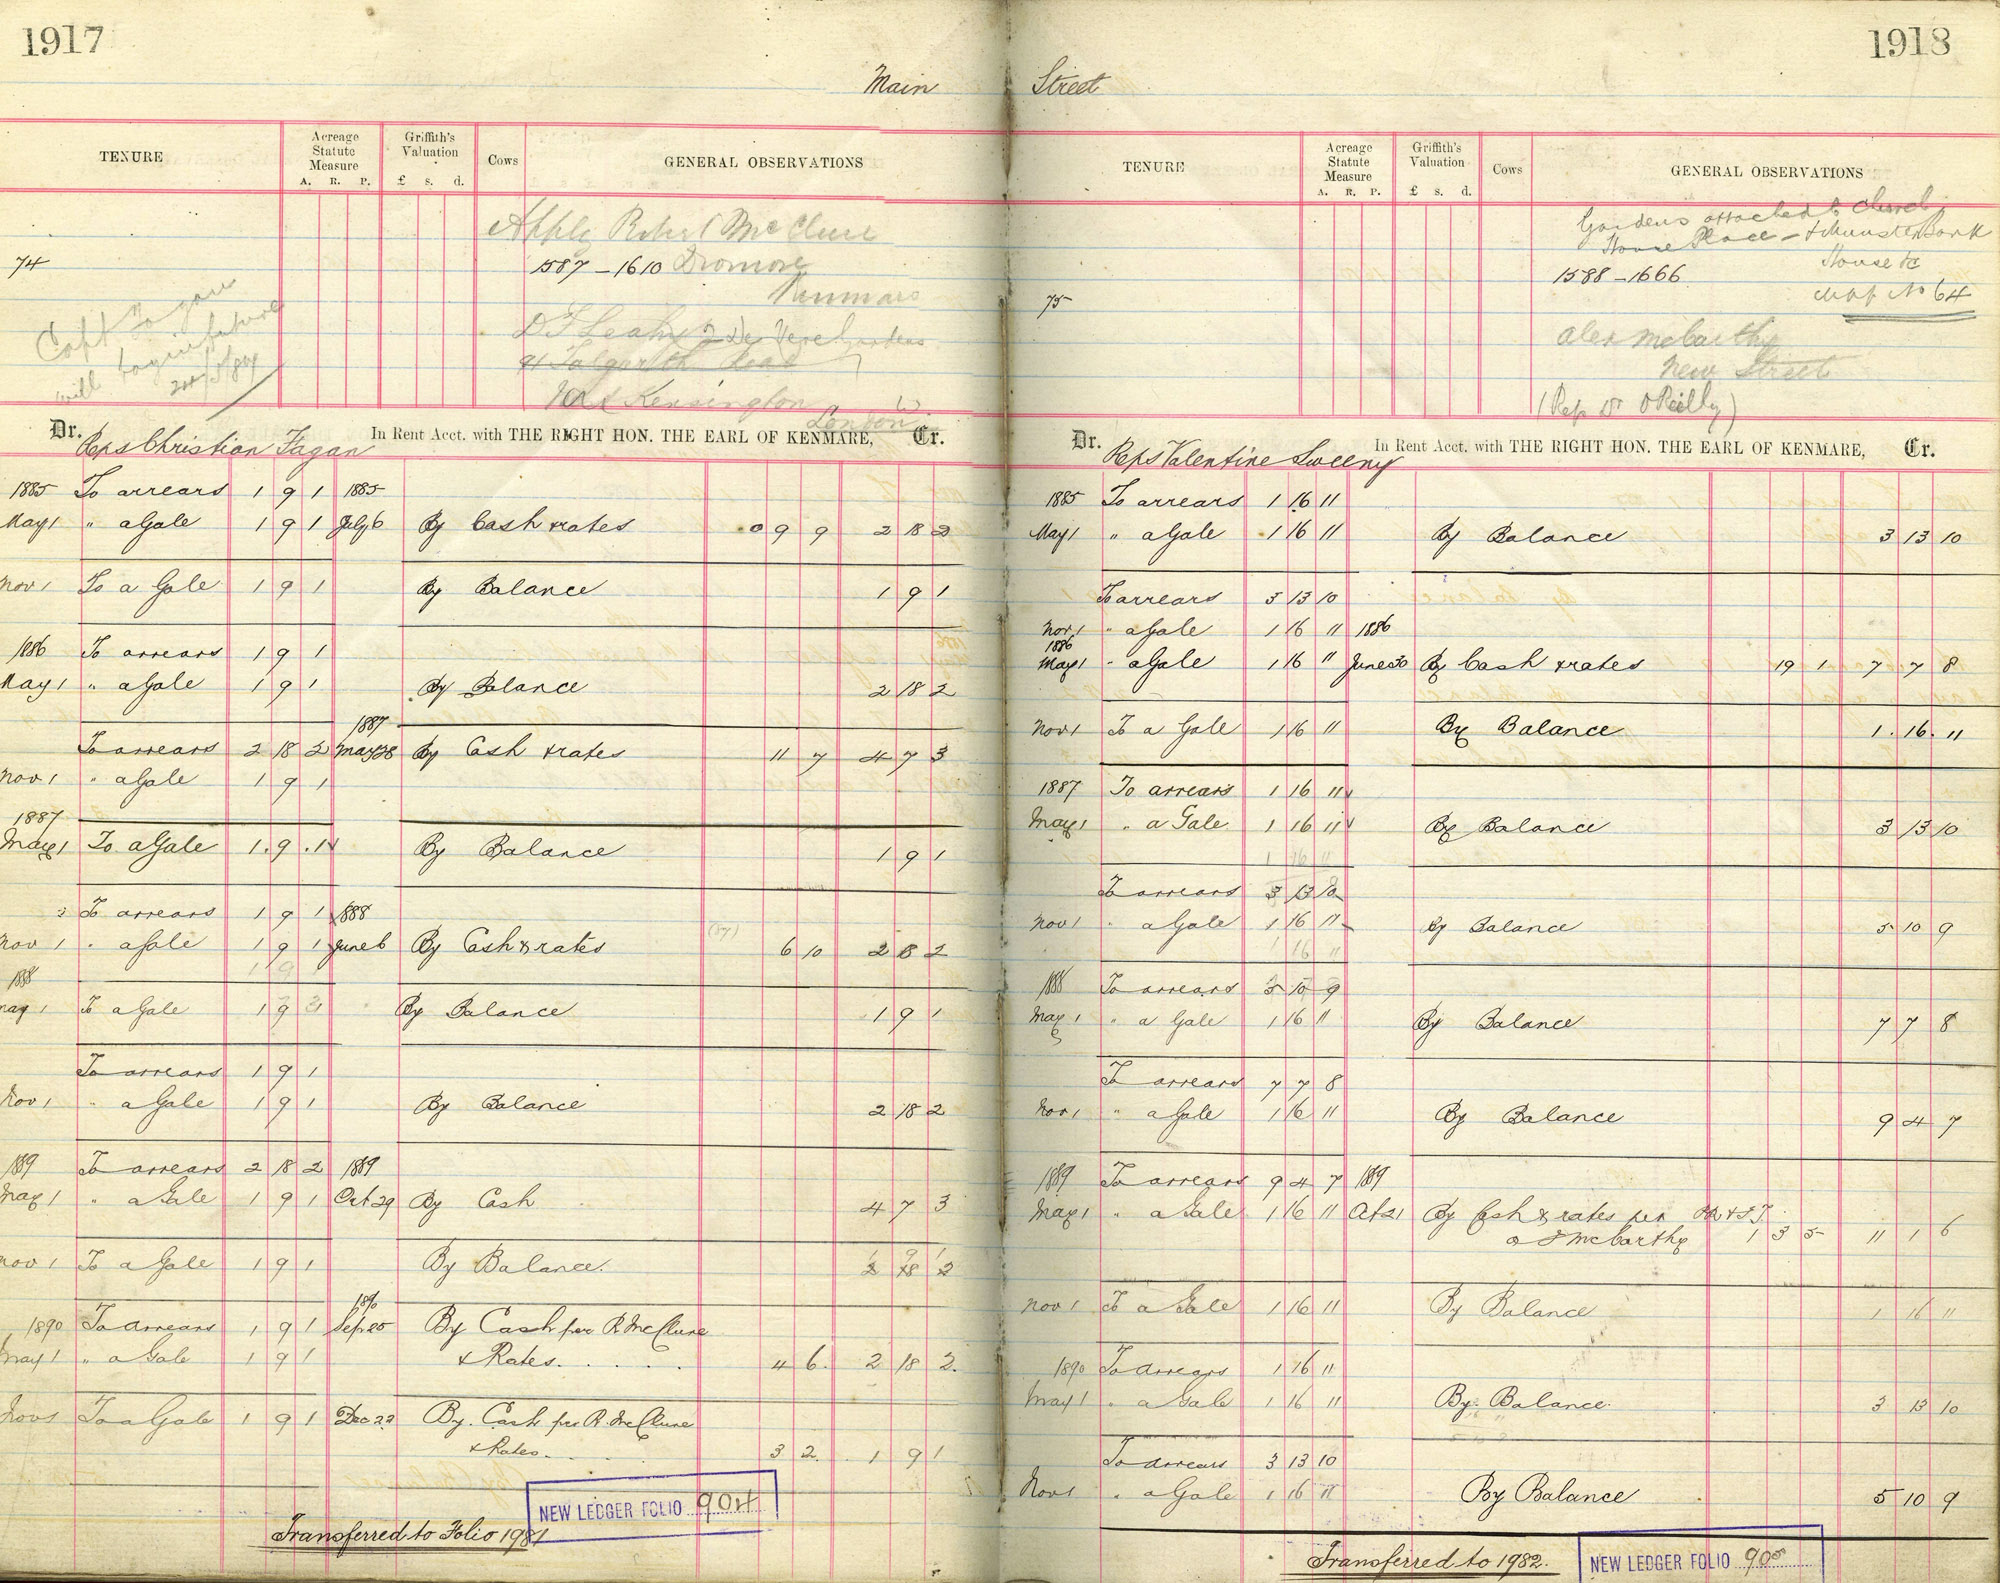 1917
Main
TENURE
Acreage Statute Measure
A. R. P.
Griffith's Valuation
£ s. d.
Cows
GENERAL OBSERVATIONS
Apply Robert McClure
74
1587 - 1610 Dromore
Kenmare
Capt Fagan
will
24/5/89
D F Leahy 2 De Vere Gardens
91 Talgarth Road
West Kensington W
London
Dr. Reps Christian Fagan In Rent Acct. with THE RIGHT HON. THE EARL OF KENMARE, Cr.
1885 To arrears 1 9 1 1885
May 1 " a Gale 1 9 1 July 6 By Cash & rates 0 9 9 2 18 2
Nov 1 To a Gale 1 9 1 By Balance 1 9 1
1886 To arrears 1 9 1
May 1 " a Gale 1 9 1 By Balance 2 18 2
1887
To arrears 2 18 2 May 28 By Cash & rates 11 7 4 7 3
Nov 1 " a Gale 1 9 1
1887
May 1 To a Gale 1. 9. 1 By Balance 1 9 1
To arrears 1 9 1 1888
Nov 1 " a Gale 1 9 1 June 6 By Cash & rates 6 10 2 18 2
1888
May 1 To a Gale 1 9 1 By Balance 1 9 1
To arrears 1 9 1
Nov 1 " a Gale 1 9 1 By Balance 2 18 2
1889 To arrears 2 18 2 1889
May 1 " a Gale 1 9 1 Oct 29 By Cash 4 7 3
1 9 1
Nov 1 To a Gale 1 9 1 By Balance. 2 18 2
1890
1890 To arrears 1 9 1 Sep 25 By Cash per R McClure
May 1 " a Gale 1 9 1 & Rates. . . . . 4 6. 2 18 2.
Nov 1 To a Gale 1 9 1 Dec 22 By Cash per R. McClure
& Rates. . . . 3 2. 1 9 1
NEW LEDGER FOLIO 904
Transferred to Folio 1981
1918
Street
TENURE
Acreage Statute Measure
A. R. P.
Griffith's Valuation
£ s. d.
Cows
GENERAL OBSERVATIONS
Gardens attached to Church
House Place - & Munster Bank
House &c
1588 - 1666
Map No 64
75
Alex McCarthy
New Street
(Rep Dr O'Reilly)
Dr. Reps Valentine Sweeny In Rent Acct. with THE RIGHT HON. THE EARL OF KENMARE, Cr.
1885 To arrears 1 16 11
May 1 " a Gale 1 16 11 By Balance 3 13 10
To arrears 3 13 10
Nov 1 " a Gale 1 16 11 1886
1886
May 1 " a Gale 1 16 11 June 30 By Cash & rates 19 1 7 7 8
Nov 1 To a Gale 1 16 11 By Balance 1. 16. 11
1887 To arrears 1 16 11
May 1 " a Gale 1 16 11 By Balance 3 13 10
1 16 11
To arrears 3 13 10
Nov 1 " a Gale 1 16 11 By Balance 5 10 9
1 16 11
1888 To arrears 5 10 9
May 1 " a Gale 1 16 11 By Balance 7 7 8
To arrears 7 7 8
Nov 1 " a Gale 1 16 11 By Balance 9 4 7
1889 To arrears 9 4 7 1889
May 1 " a Gale 1 16 11 Oct 21 By Cash & rates per
McCarthy 1 3 5 11 1 6
Nov 1 To a Gale 1 16 11 By Balance 1 16 11
1890 To arrears 1 16 11
May 1 " a Gale 1 16 11 By Balance. 3 13 10
To arrears 3 13 10
Nov 1 " a Gale 1 16 11 By Balance 5 10 9
Transferred to 1982.
NEW LEDGER FOLIO 905